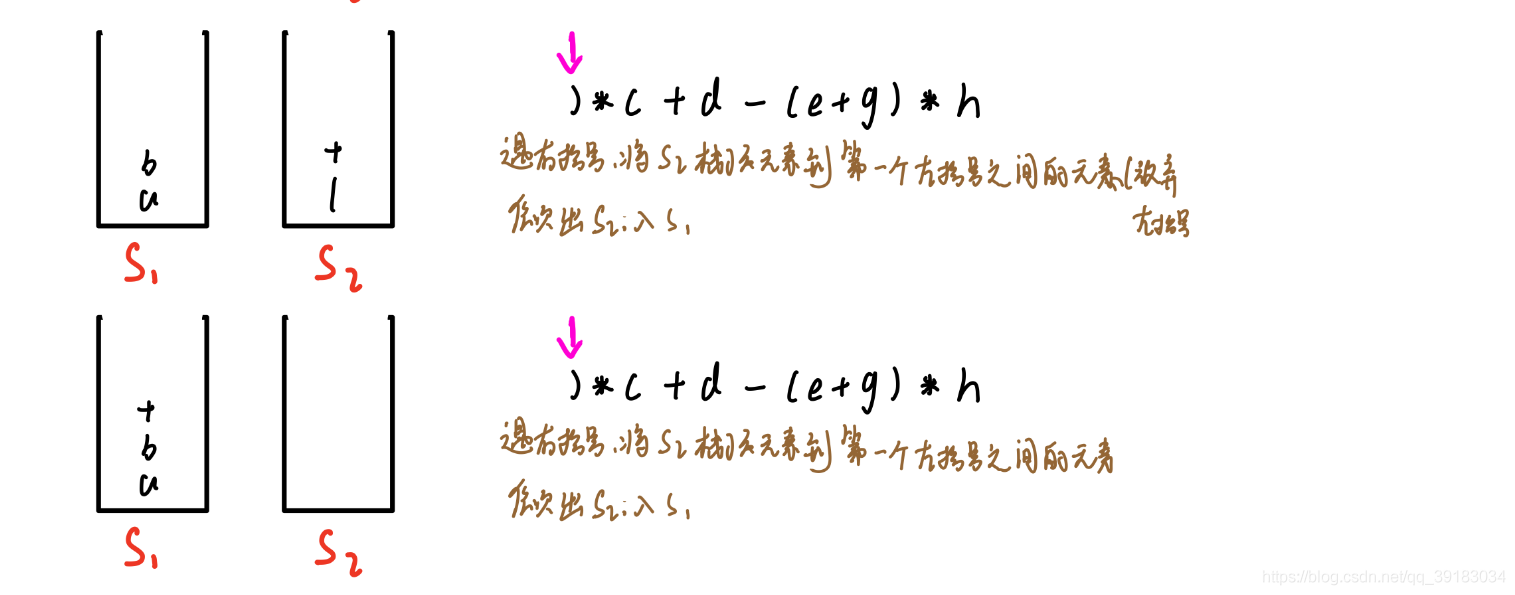 b
a
S₁
+
(
S₂
)*c+d-(e+g)*h
遇右括号,将S₂栈顶元素到第一个左括号之间的元素(放弃
左括号
依次出S₂,入S₁
+
b
a
S₁
S₂
)*c+d-(e+g)*h
遇右括号,将S₂栈顶元素到第一个左括号之间的元素
依次出S₂,入S₁
https://blog.csdn.net/qq_39183034